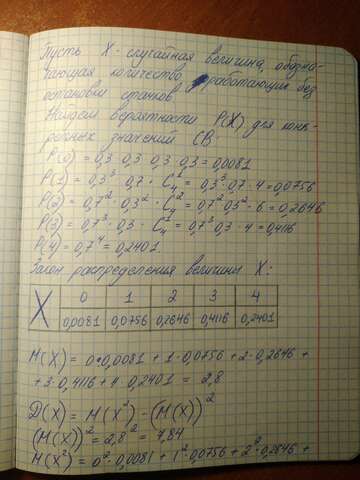 Пусть X - случайная величина, обозна-
чающая количество работающих без
остановки станков
Найдем вероятности P(X) для конк-
ретных значений СВ
P(0) = 0,3 · 0,3 · 0,3 · 0,3 = 0,0081
P(1) = 0,3³ · 0,7 · C₄¹ = 0,3³ · 0,7 · 4 = 0,0756
P(2) = 0,7² · 0,3² · C₄² = 0,7² · 0,3² · 6 = 0,2646
P(3) = 0,7³ · 0,3 · C₄¹ = 0,7³ · 0,3 · 4 = 0,4116
P(4) = 0,7⁴ = 0,2401
Закон распределения величины X:
X 0 1 2 3 4
0,0081 0,0756 0,2646 0,4116 0,2401
M(X) = 0 · 0,0081 + 1 · 0,0756 + 2 · 0,2646 +
+ 3 · 0,4116 + 4 · 0,2401 = 2,8
D(X) = M(X²) - (M(X))²
(M(X))² = 2,8² = 7,84
M(X²) = 0² · 0,0081 + 1² · 0,0756 + 2² · 0,2646 +